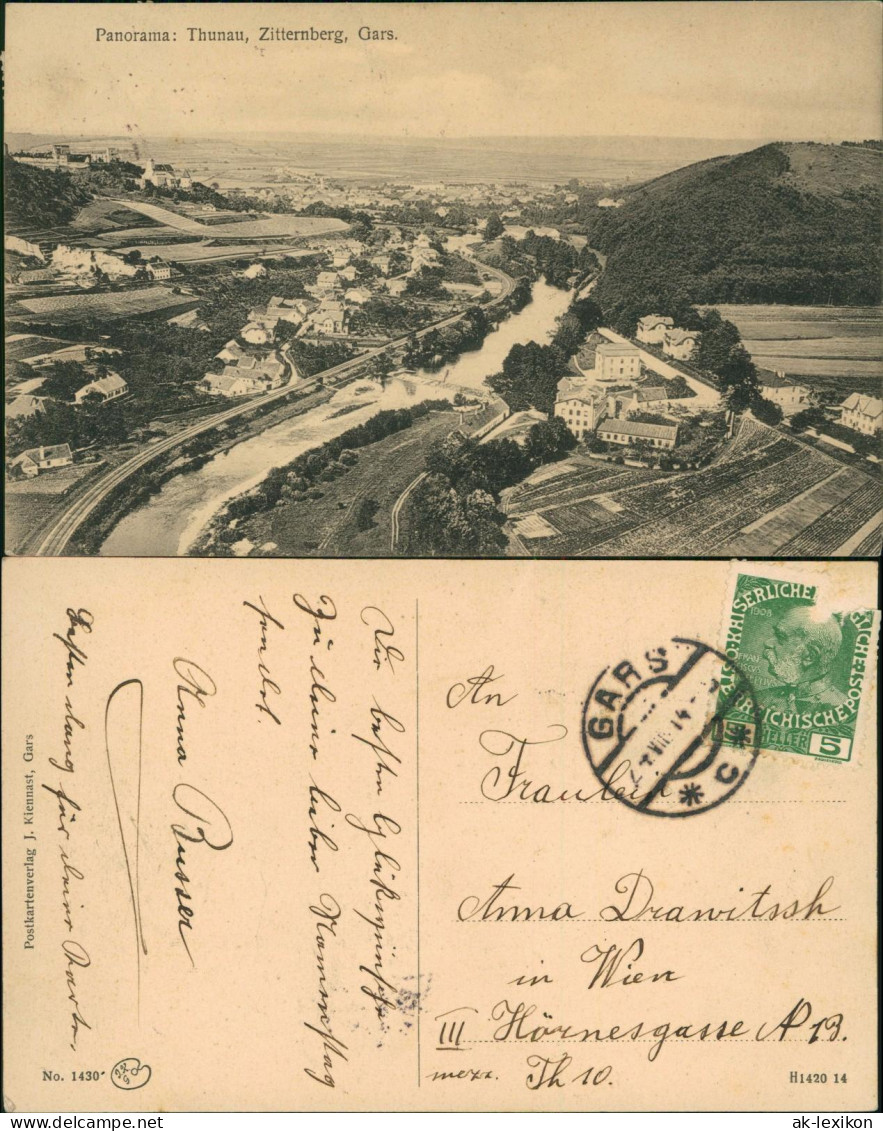 Panorama: Thunau, Zitternberg, Gars.
Die besten Glückwünsche
Zu Deinem lieben Namenstag
sendet
Anna Busser
Besten Dank für Deine Karte.
Postkartenverlag J. Kiennast, Gars
No. 1430
GARS
VII. 14
* c *
KAISERLICHE
1908
5
HELLER
An
Fräulein
Anna Drawitssh
in Wien
III Hörnesgasse N 13.
mezz. Th 10.
H1420 14
ak-lexikon